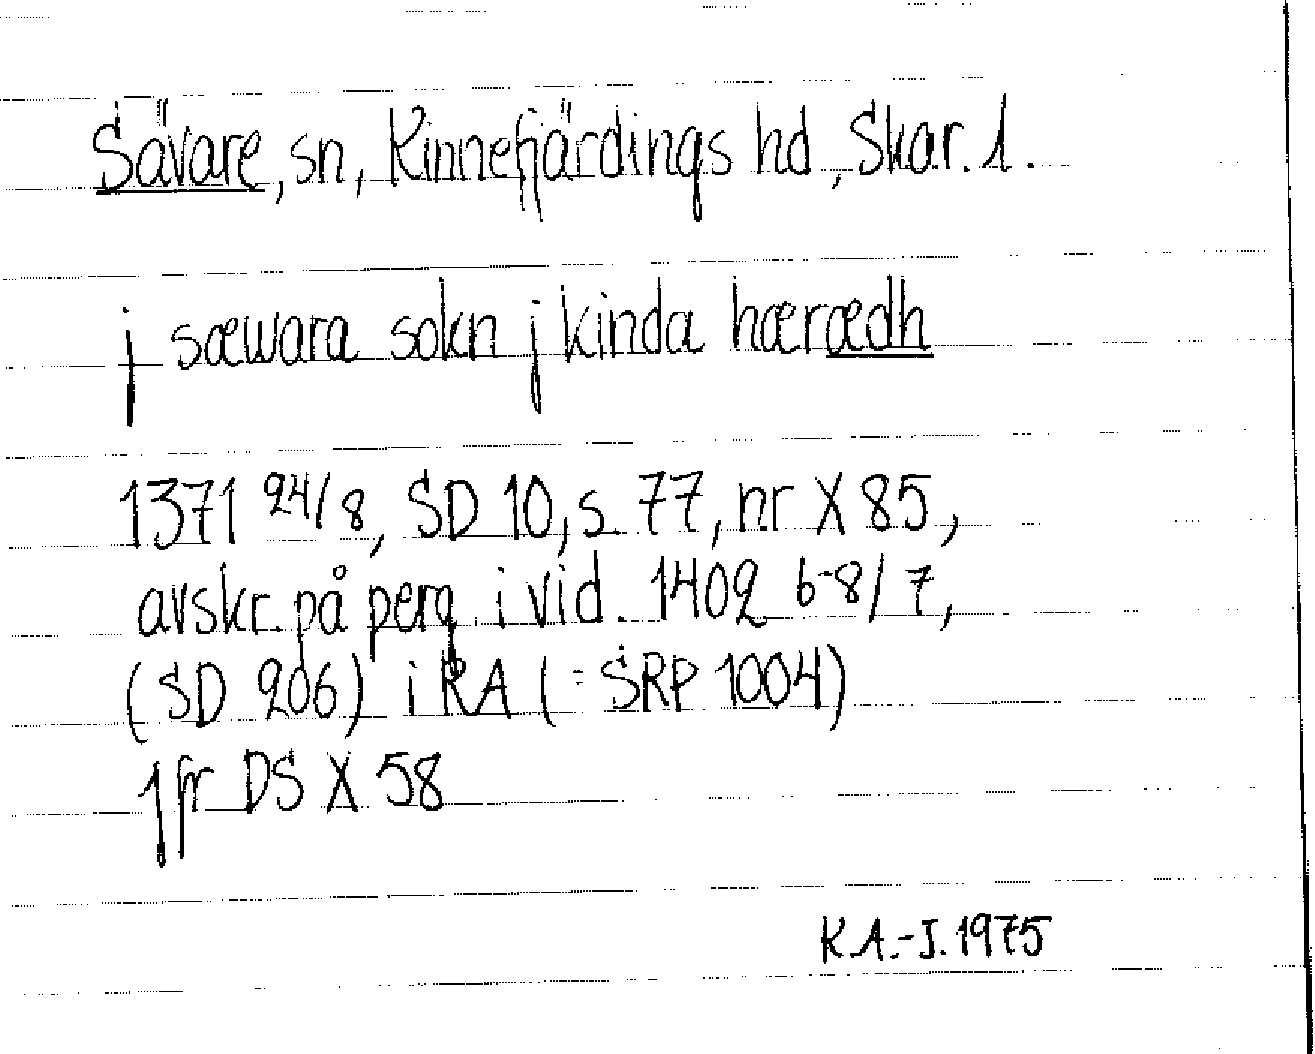 Sävare, sn, Kinnefjärdings hd, Skar. l.
j sæwara sokn j kinda hærædh
1371 24/8, SD 10, s. 77, nr X 85,
avskr. på perg. i vid. 1402 6-8/7,
(SD 206) i RA (= SRP 1004)
jfr DS X 58
K.A.-J. 1975